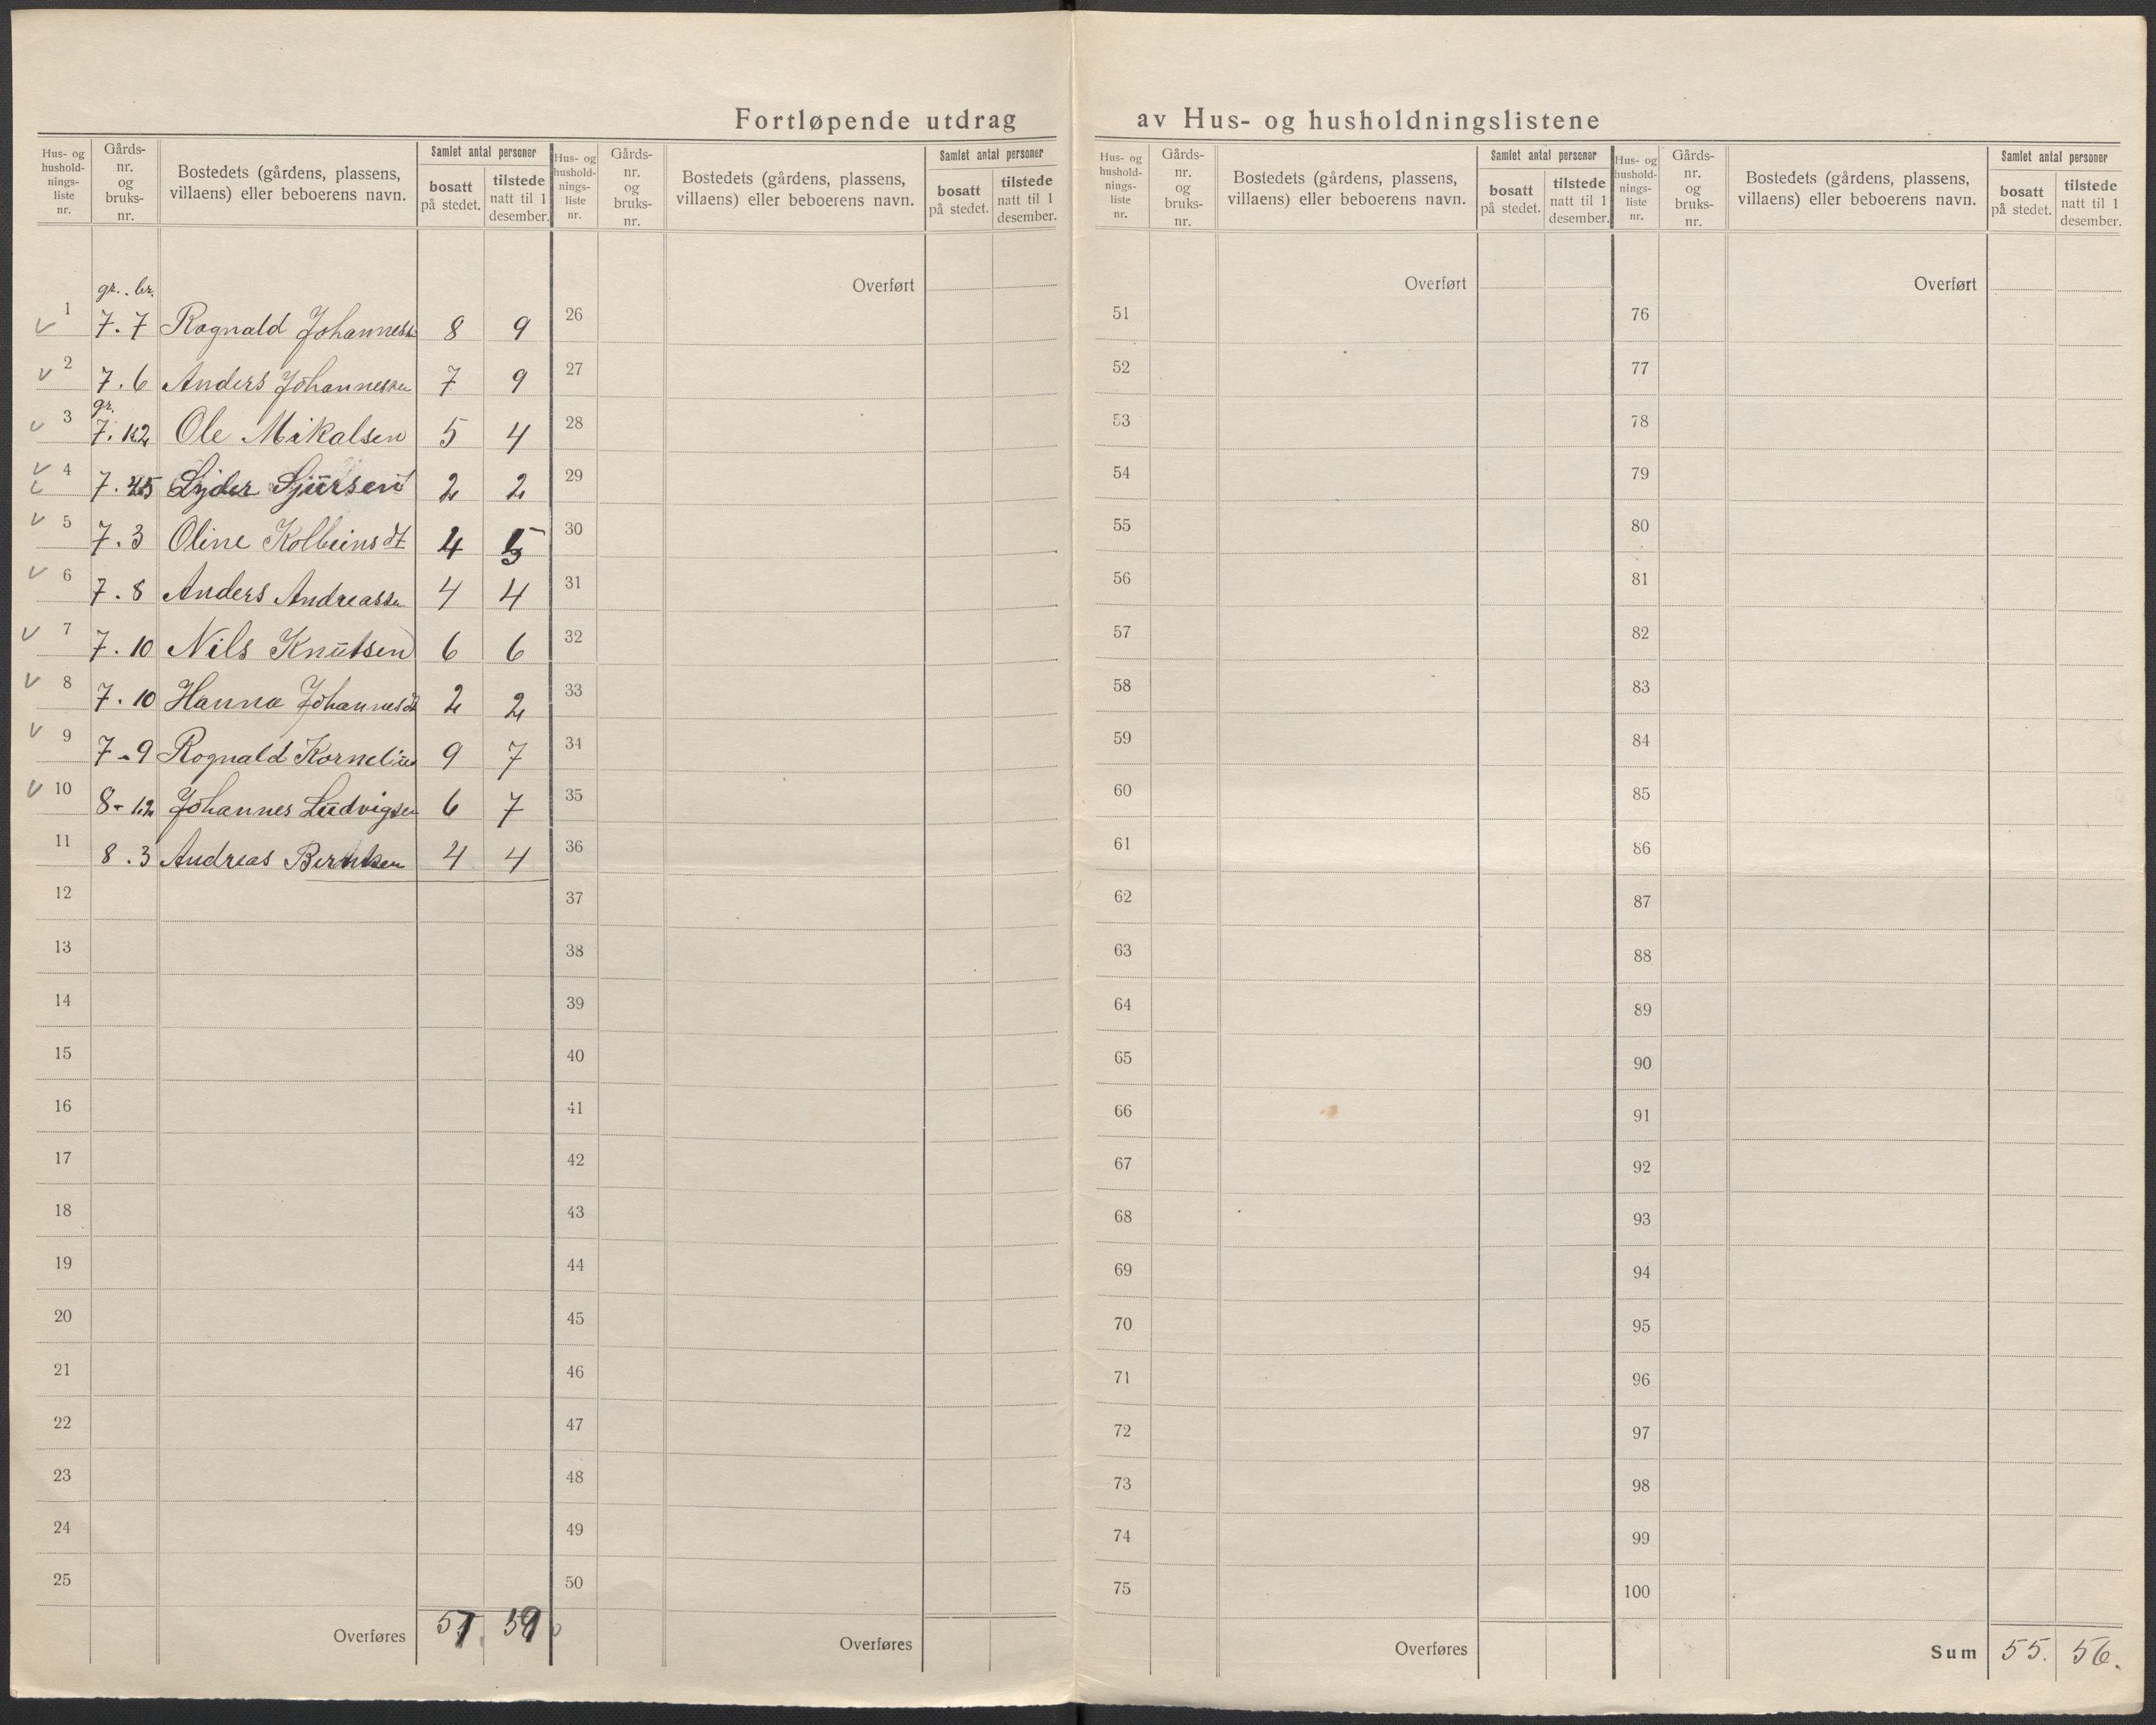 Fortløpende utdrag av Hus- og husholdningslistene
Hus- og hushold- nings- liste nr. | Gårds- nr. og bruks- nr. | Bostedets (gårdens, plassens, villaens) eller beboerens navn. | Samlet antal personer | bosatt på stedet. | tilstede natt til 1 desember.
gr. br.
1 7.7 Rognald Johanness 8 9
2 7.6 Anders Johannessen 7 9
gr.
3 7. Ole Mikalsen 5 4
4 7. Lyder Sjursen 2 2
5 7.3 Oline Kolbeinsdt 4 5
6 7.8 Anders Andreassn 4 4
7 7.10 Nils Knutsen 6 6
8 7.10 Hanna Johannesdt 2 2
9 7-9 Rognald Kornelius 9 7
10 8-12 Johannes Ludvigsen 6 7
11 8.3 Andreas Berntsen 4 4
12
13
14
15
16
17
18
19
20
21
22
23
24
25
Overføres 57. 59
Hus- og hushold- nings- liste nr. | Gårds- nr. og bruks- nr. | Bostedets (gårdens, plassens, villaens) eller beboerens navn. | Samlet antal personer | bosatt på stedet. | tilstede natt til 1 desember.
Overført
26
27
28
29
30
31
32
33
34
35
36
37
38
39
40
41
42
43
44
45
46
47
48
49
50
Overføres
Hus- og hushold- nings- liste nr. | Gårds- nr. og bruks- nr. | Bostedets (gårdens, plassens, villaens) eller beboerens navn. | Samlet antal personer | bosatt på stedet. | tilstede natt til 1 desember.
Overført
51
52
53
54
55
56
57
58
59
60
61
62
63
64
65
66
67
68
69
70
71
72
73
74
75
Overføres
Hus- og hushold- nings- liste nr. | Gårds- nr. og bruks- nr. | Bostedets (gårdens, plassens, villaens) eller beboerens navn. | Samlet antal personer | bosatt på stedet. | tilstede natt til 1 desember.
Overført
76
77
78
79
80
81
82
83
84
85
86
87
88
89
90
91
92
93
94
95
96
97
98
99
100
Sum 55. 56.